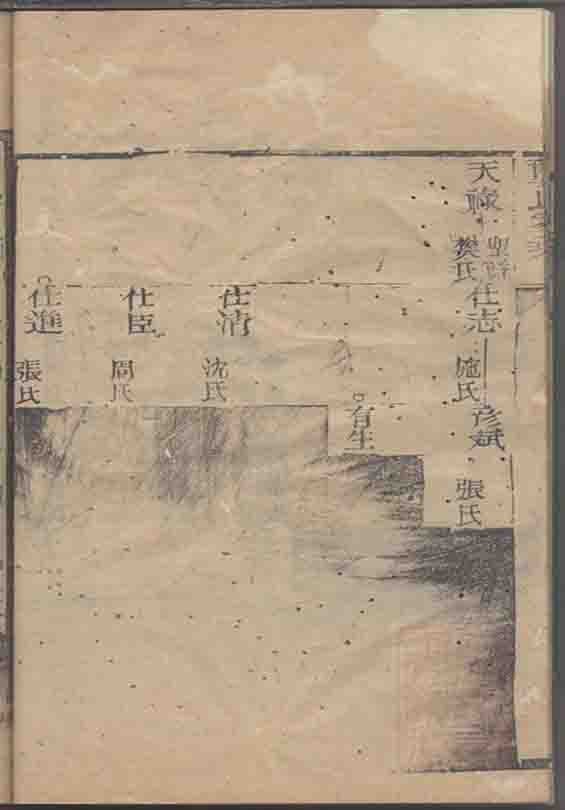 天祿
樊氏
仕志
施氏
彦斌
張氏
有生
仕清
沈氏
仕臣
周氏
仕進
張氏